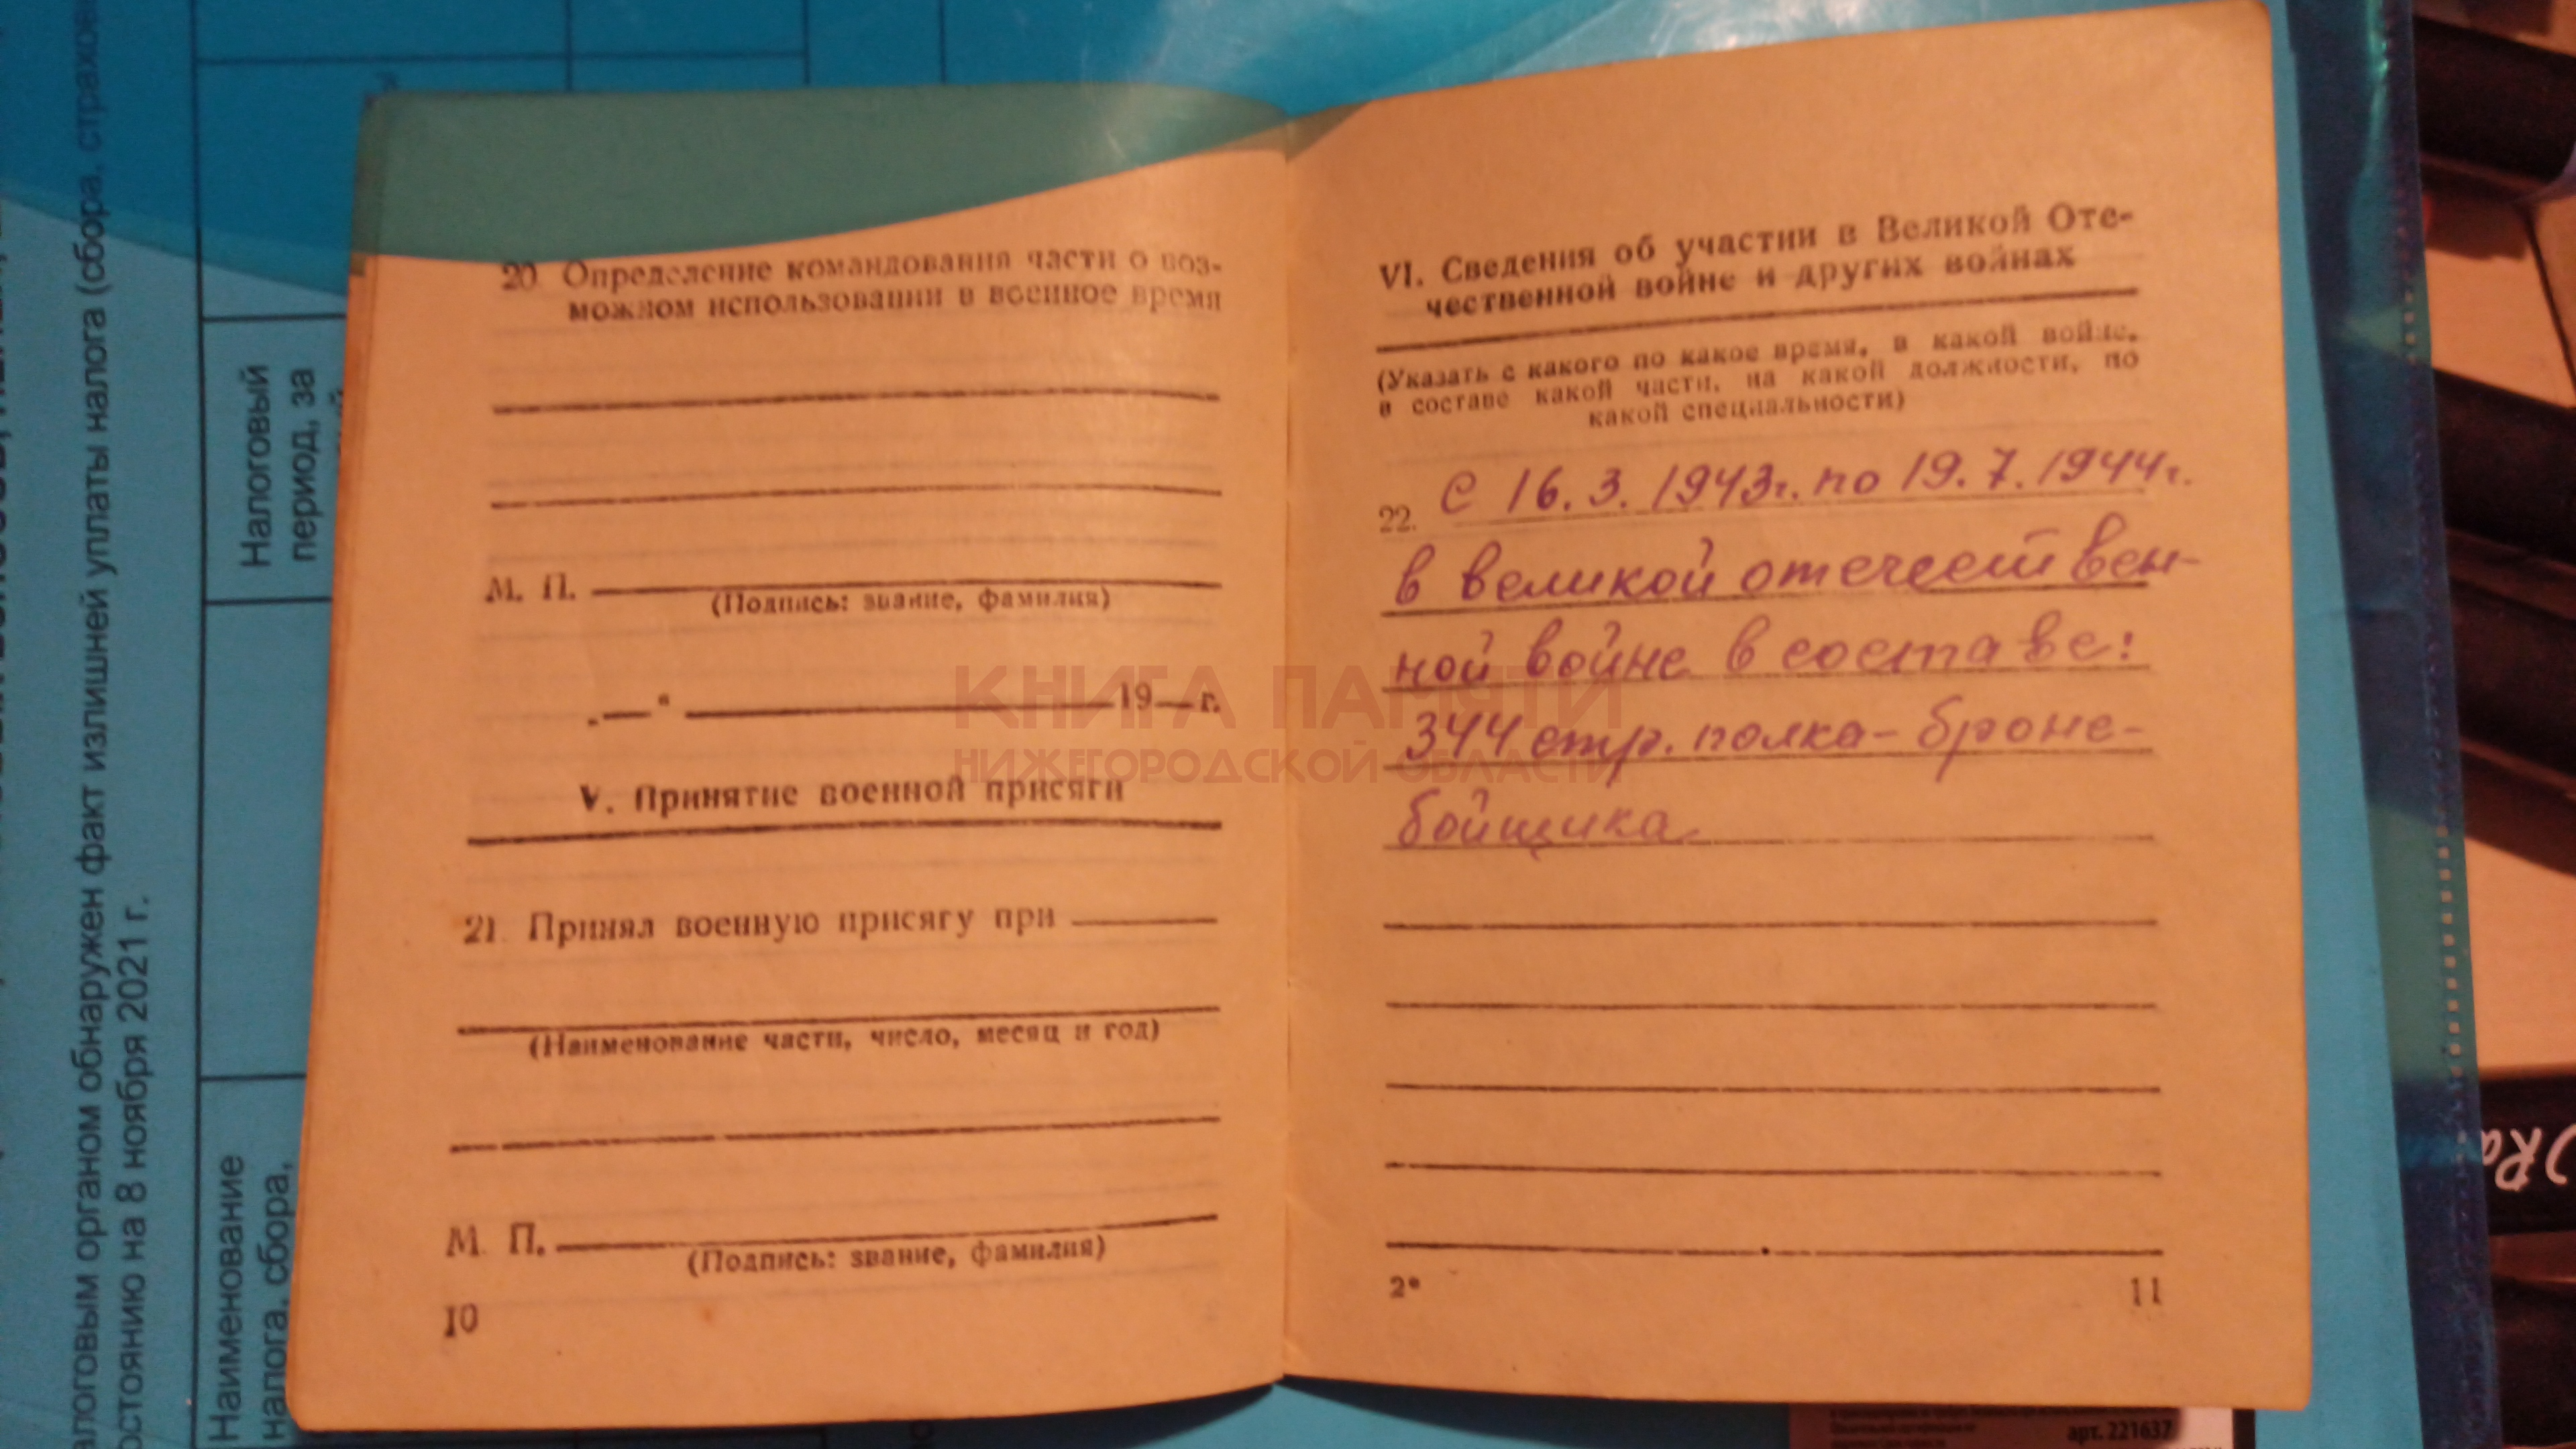 20. Определение командования части о воз-
можном использовании в военное время
М. П.
(Подпись: звание, фамилия)
„ “ 19 г.
V. Принятие военной присяги
21. Принял военную присягу при
(Наименование части, число, месяц и год)
М. П.
(Подпись: звание, фамилия)
10
VI. Сведения об участии в Великой Оте-
чественной войне и других войнах
(Указать с какого по какое время, в какой войне,
в составе какой части, на какой должности, по
какой специальности)
22. С 16.3.1943г. по 19.7.1944г.
в великой отечествен-
ной войне в составе:
344 стр. полка - броне-
бойщика.
2*
11
КНИГА ПАМЯТИ
НИЖЕГОРОДСКОЙ ОБЛАСТИ
алоговым органом обнаружен факт излишней уплаты налога (сбора, страхов
остоянию на 8 ноября 2021 г.
Налоговый
период, за
Наименование
налога, сбора,
арт. 221637